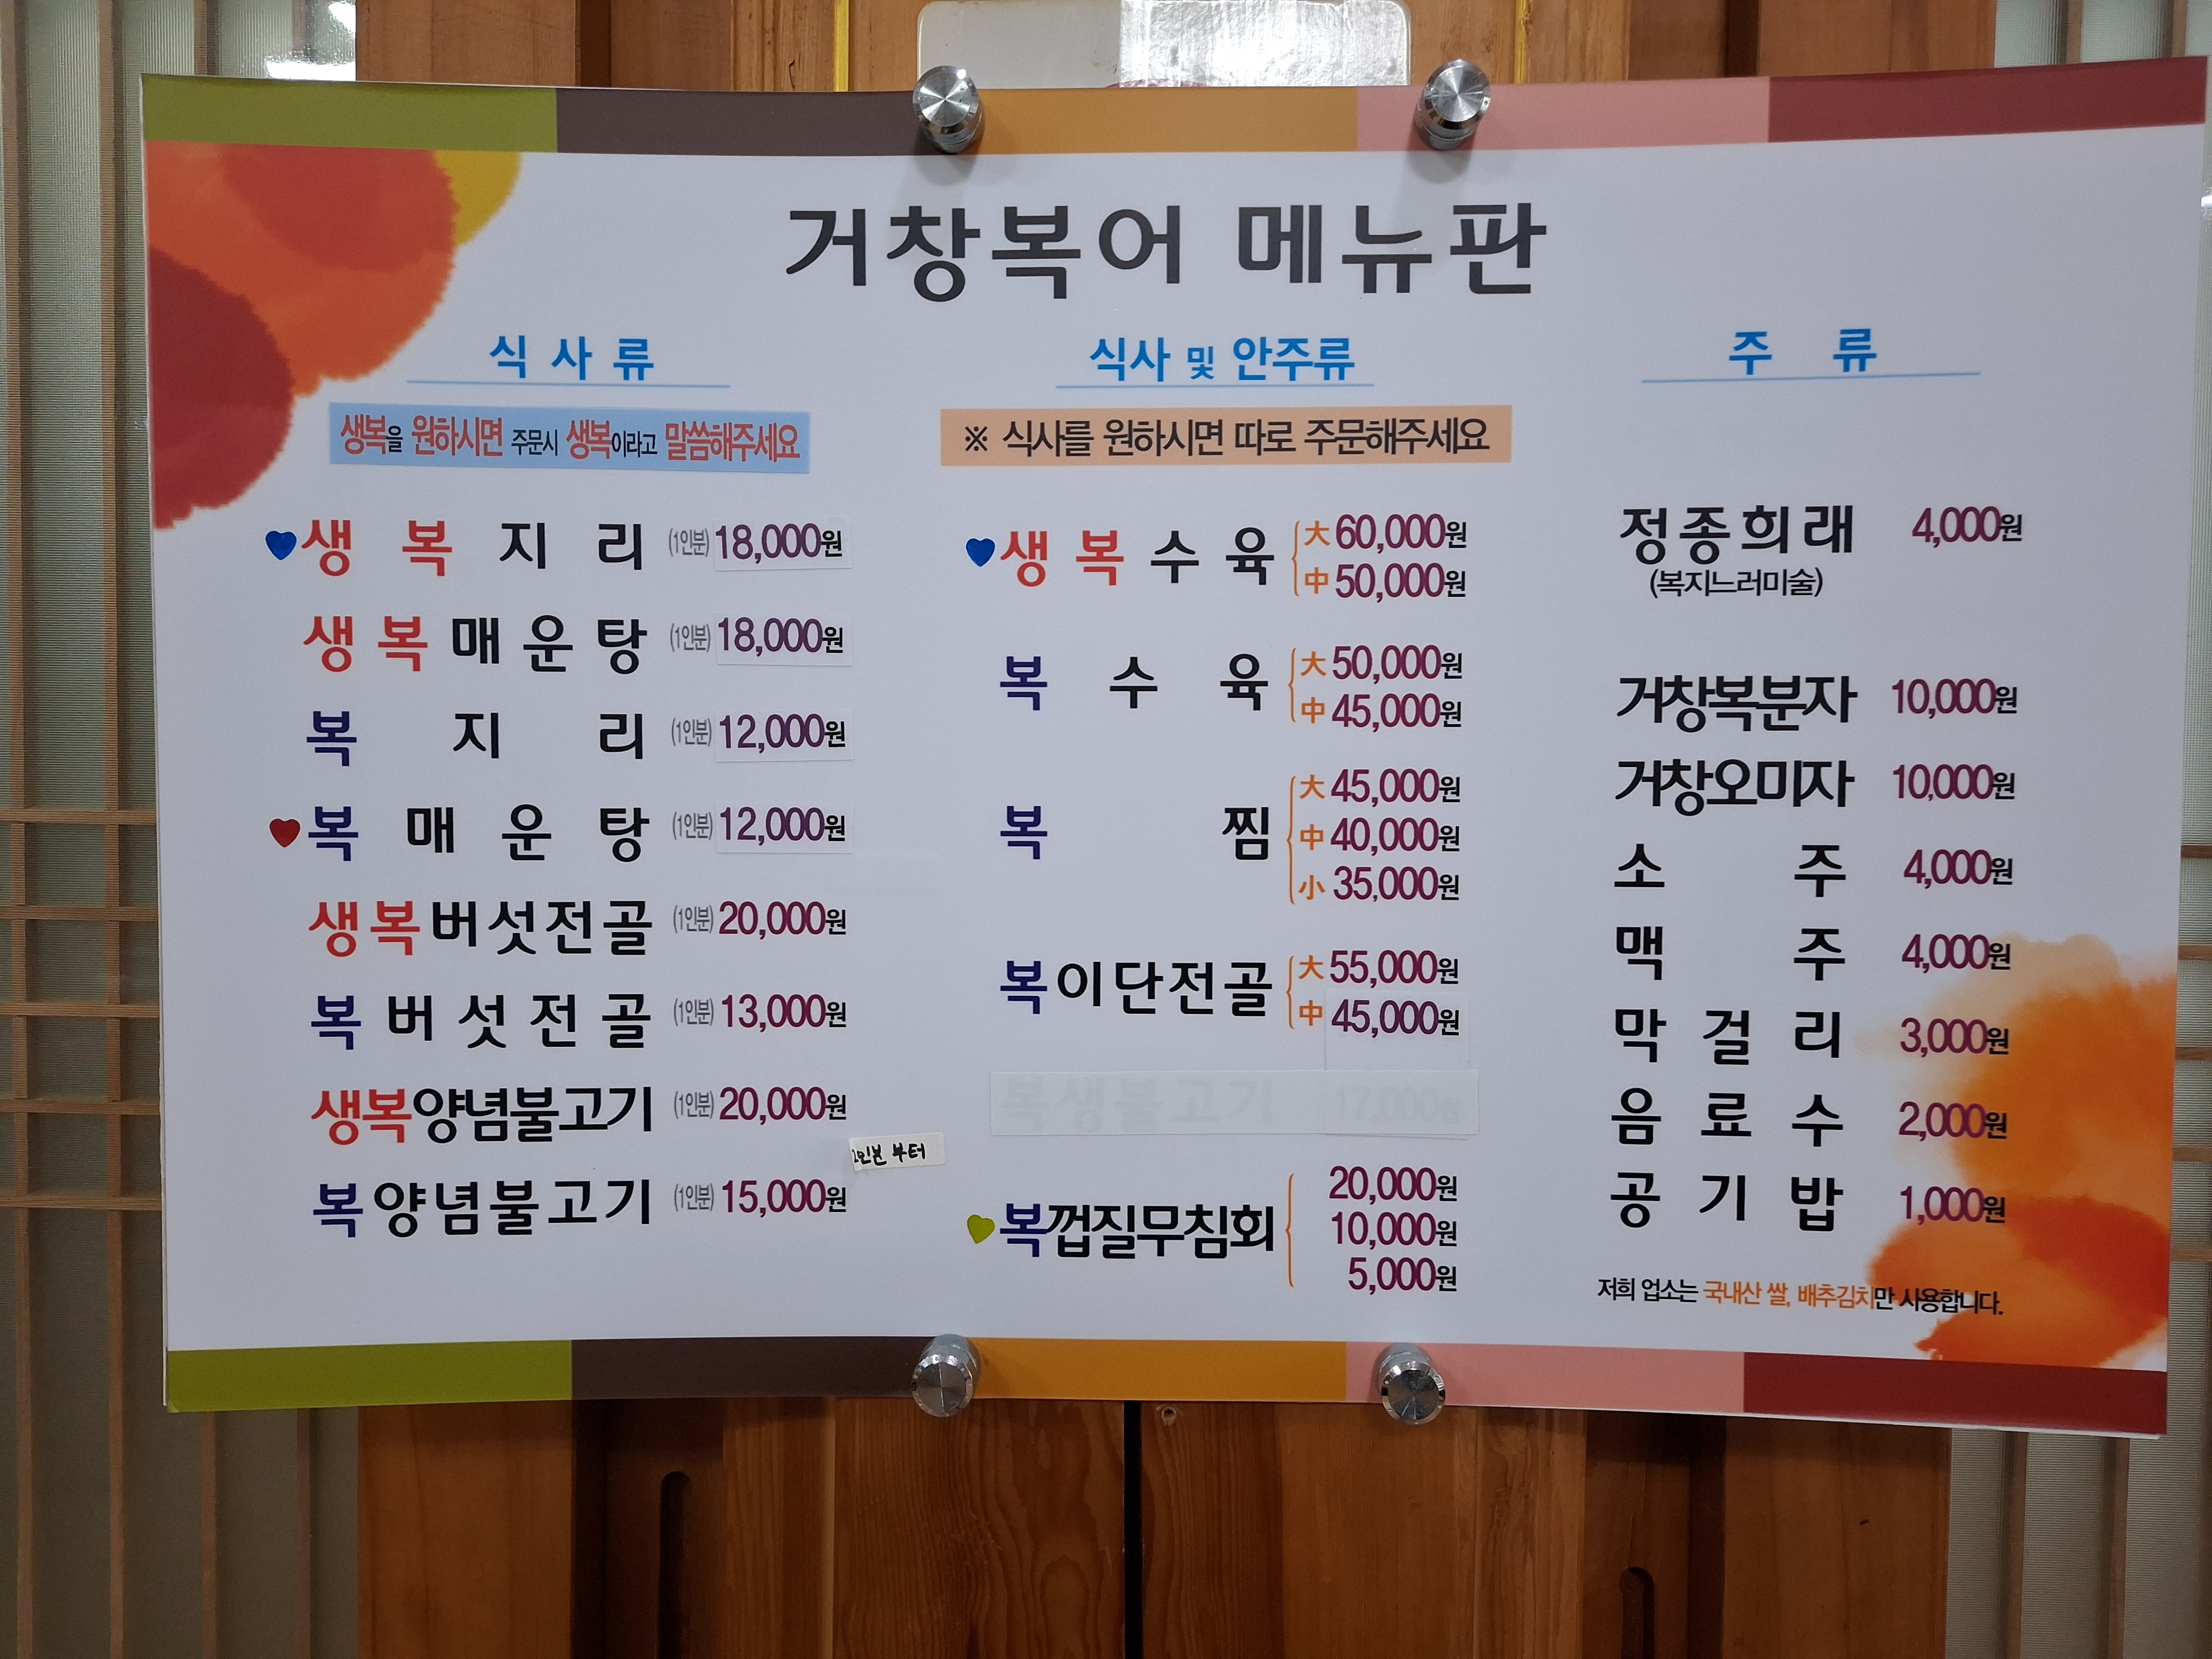 거창복어 메뉴판
식사류
생복을 원하시면 주문시 생복이라고 말씀해주세요
생복지리 (1인분) 18,000원
생복매운탕 (1인분) 18,000원
복지리 (1인분) 12,000원
복매운탕 (1인분) 12,000원
생복버섯전골 (1인분) 20,000원
복버섯전골 (1인분) 13,000원
생복양념불고기 (1인분) 20,000원
2인분 부터
복양념불고기 (1인분) 15,000원
식사 및 안주류
※ 식사를 원하시면 따로 주문해주세요
생복수육 大 60,000원
中 50,000원
복수육 大 50,000원
中 45,000원
복찜 大 45,000원
中 40,000원
小 35,000원
복이단전골 大 55,000원
中 45,000원
복생불고기 17,000원
복껍질무침회 20,000원
10,000원
5,000원
주류
정종희래 4,000원
(복지느러미술)
거창복분자 10,000원
거창오미자 10,000원
소주 4,000원
맥주 4,000원
막걸리 3,000원
음료수 2,000원
공기밥 1,000원
저희 업소는 국내산 쌀, 배추김치만 사용합니다.